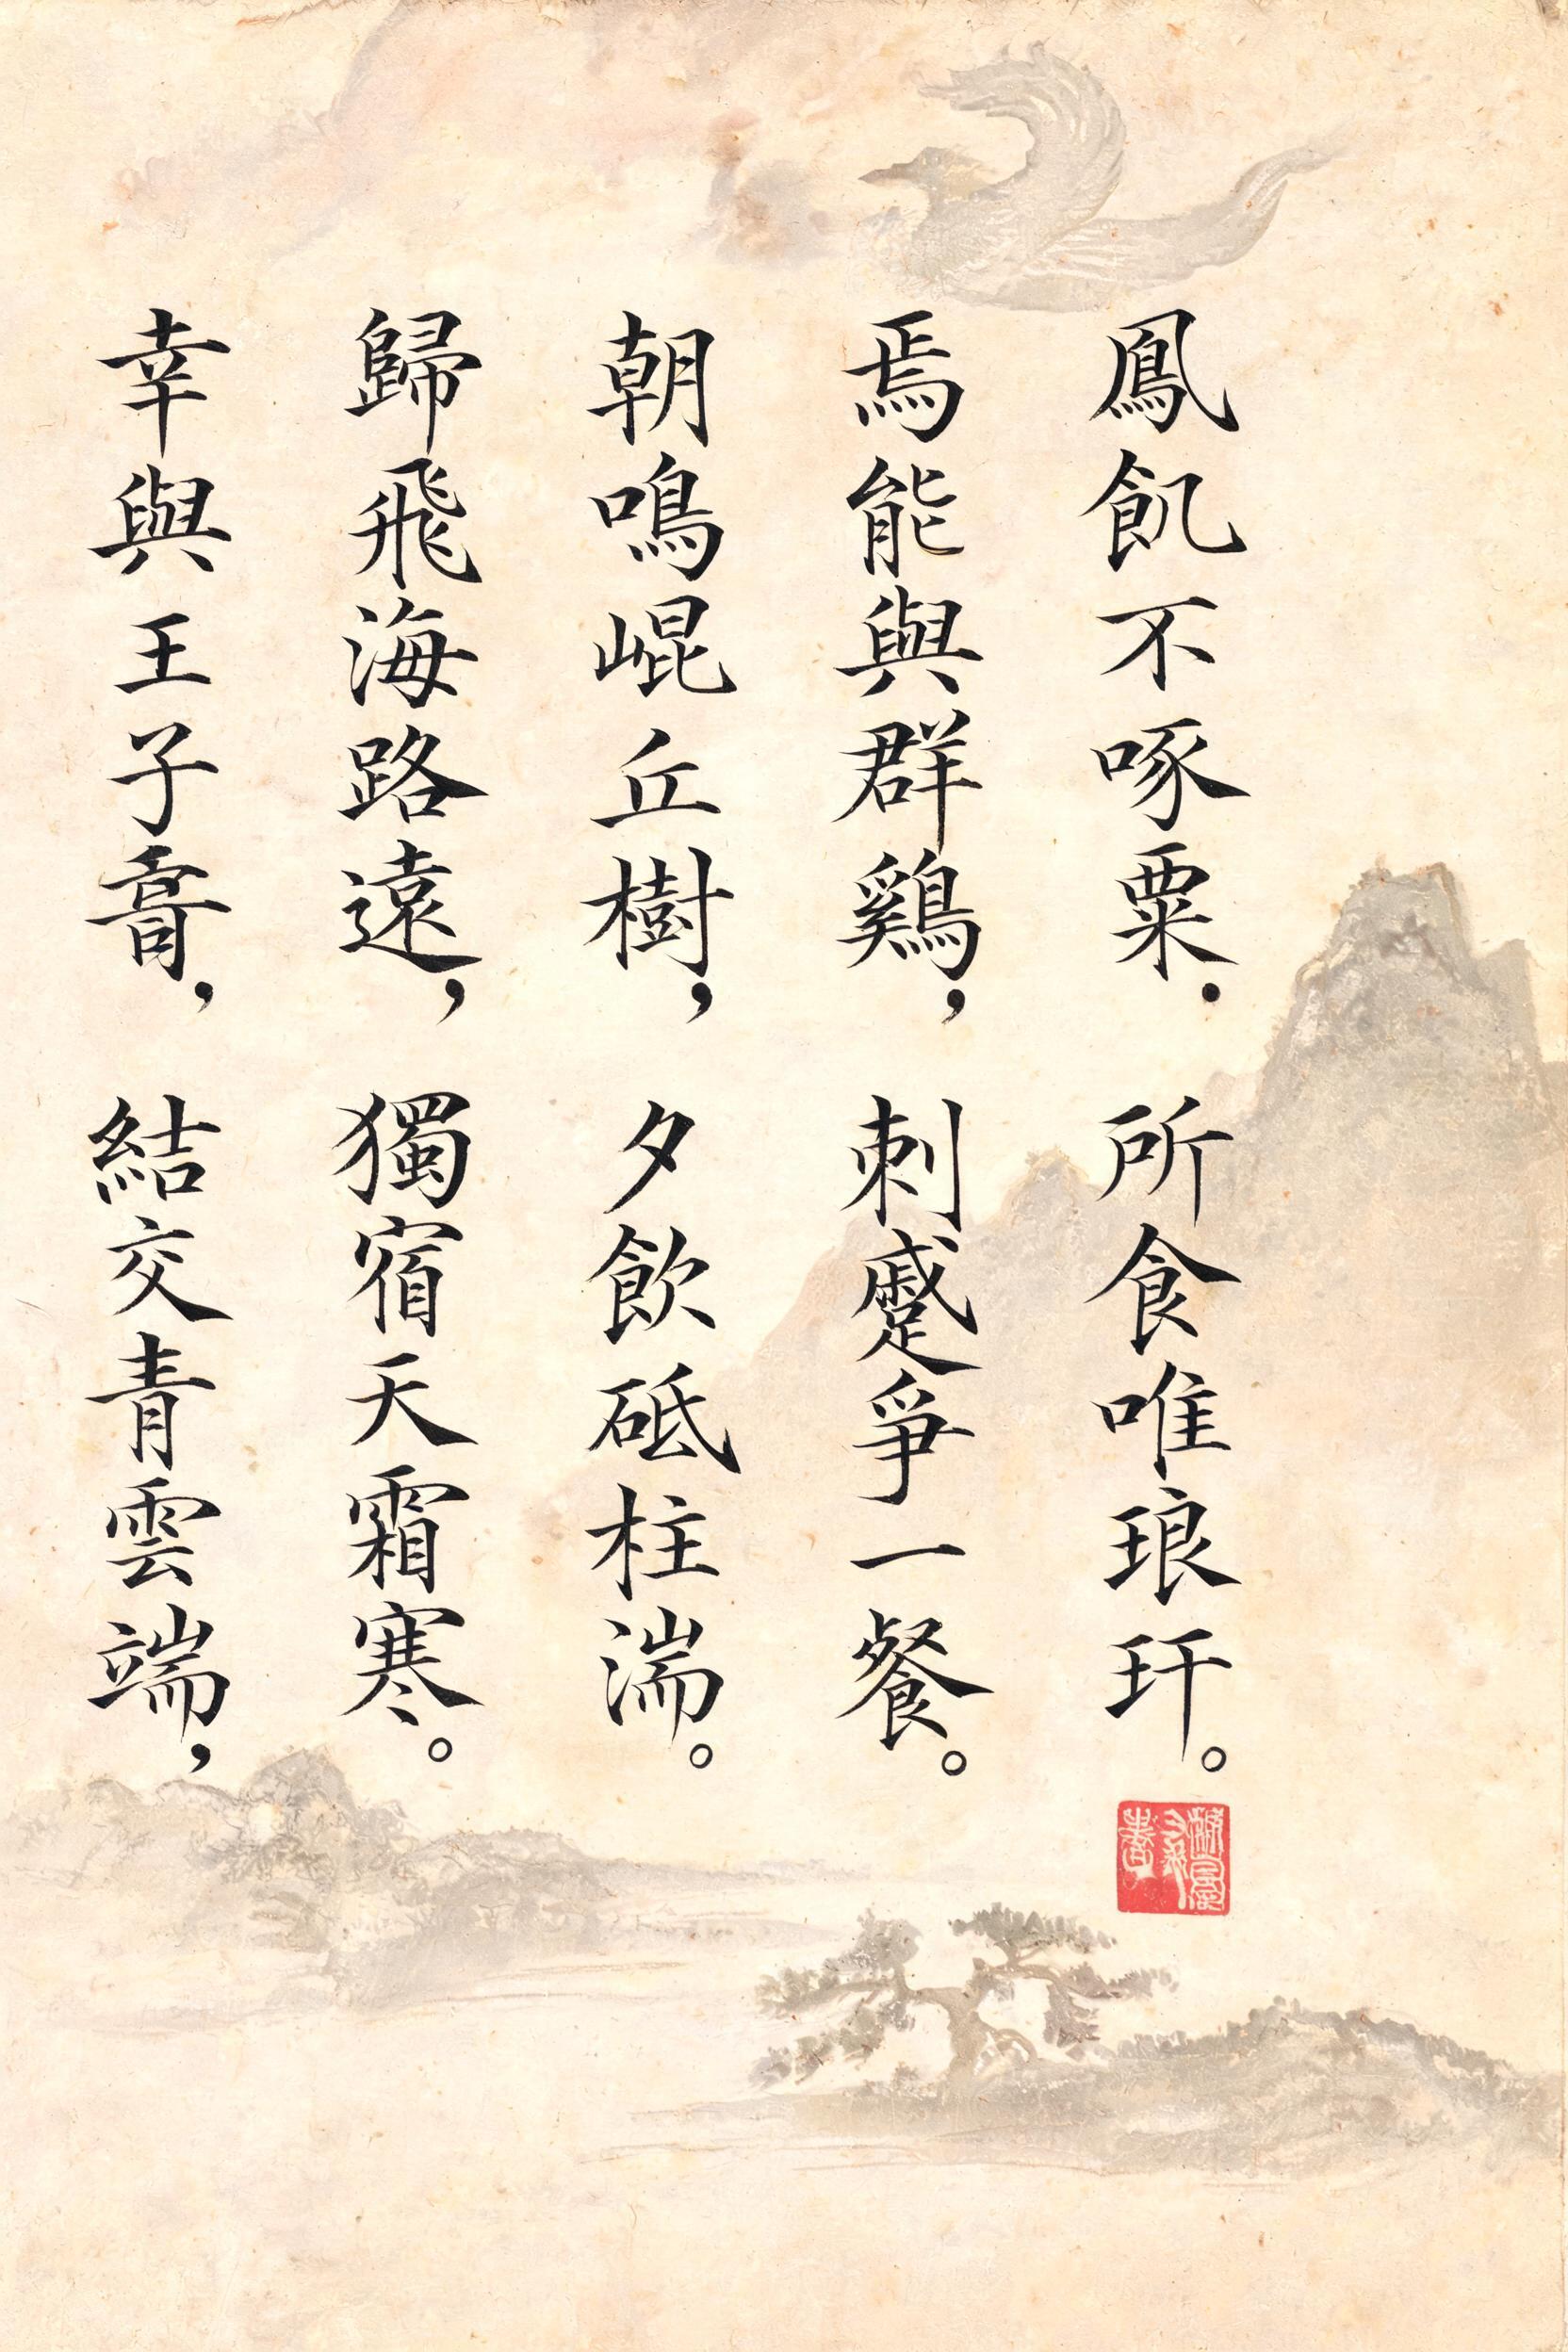 鳳飢不啄粟．所食唯琅玕。
焉能與群鷄，刺蹙爭一餐。
朝鳴崐丘樹，夕飲砥柱湍。
歸飛海路遠，獨宿天霜寒。
幸與王子，結交青雲端，